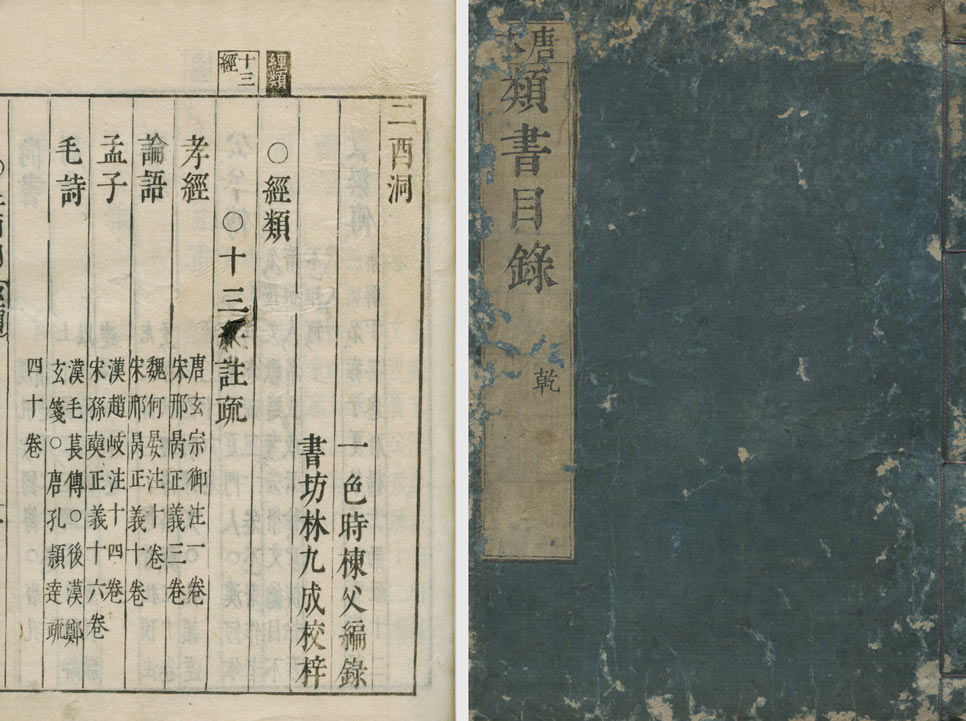 經類
十三
經
二酉洞
一色時棟父編錄
書坊林九成校梓
○經類
○十三經註疏
孝經
唐玄宗御注一卷
宋邢昺正義三卷
論語
魏何晏注十卷
宋邢昺正義十卷
孟子
漢趙岐注十四卷
宋孫奭正義十六卷
毛詩
漢毛萇傳○後漢鄭
玄箋○唐孔頴達疏
四十卷
唐
類書目錄
乾